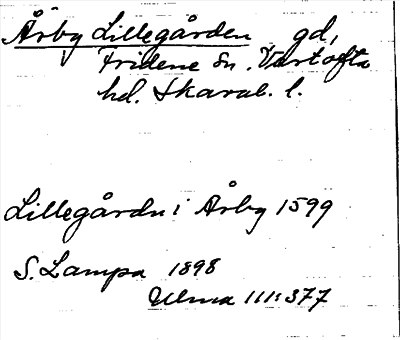 Årby Lillegården gd,
Fridene sn. Vartofta
hd. Skarab. l.
Lillegårdn i Årby 1599
S. Lampa 1898
Ulma 111:377